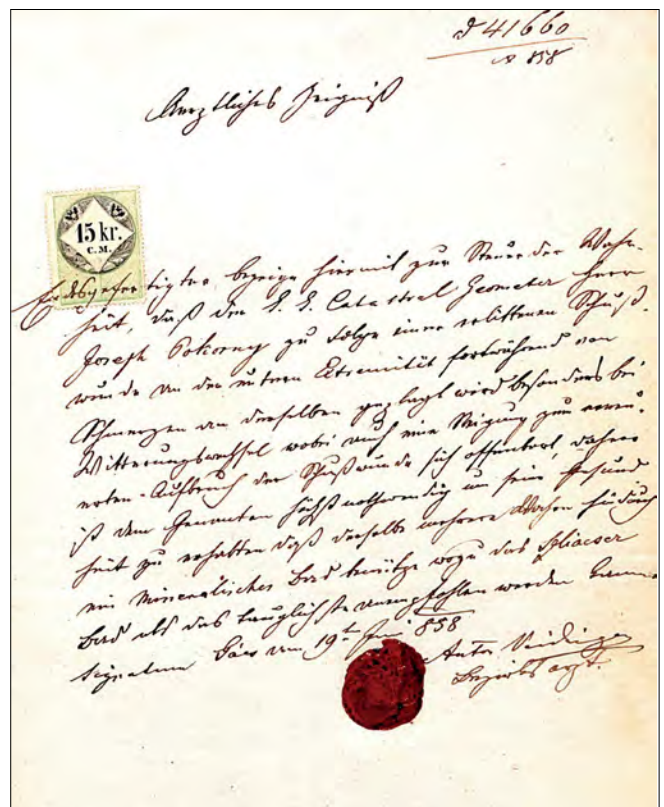 41660
858
Aerztliches Zeigniß
15 kr.
C.M.
Endesgefertigter bezeige hiermit zur Steuer der Wahr-
heit, daß der k. k. Catastral Geometer Herr
Joseph Pokorny zu Folge einer erlittenen Schuß-
wunde an der untern Extremität fortwährend von
Schmerzen an derselben geplagt wird besonders bei
Witterungswechsel wobei auch eine Neigung zum erneu-
erten Aufbruch der Schußwunde sich offenbart, daher
ist dem Genannten höchst nothwendig um seine Gesund
heit zu erhalten daß derselbe mehrere Wochen hindurch
ein Mineralisches Bad benütze wozu das Sliacser
Bad als das tauglichste anempfohlen werden kann
Signatum am 19ten Juni 858
Anton
Bezirksarzt.